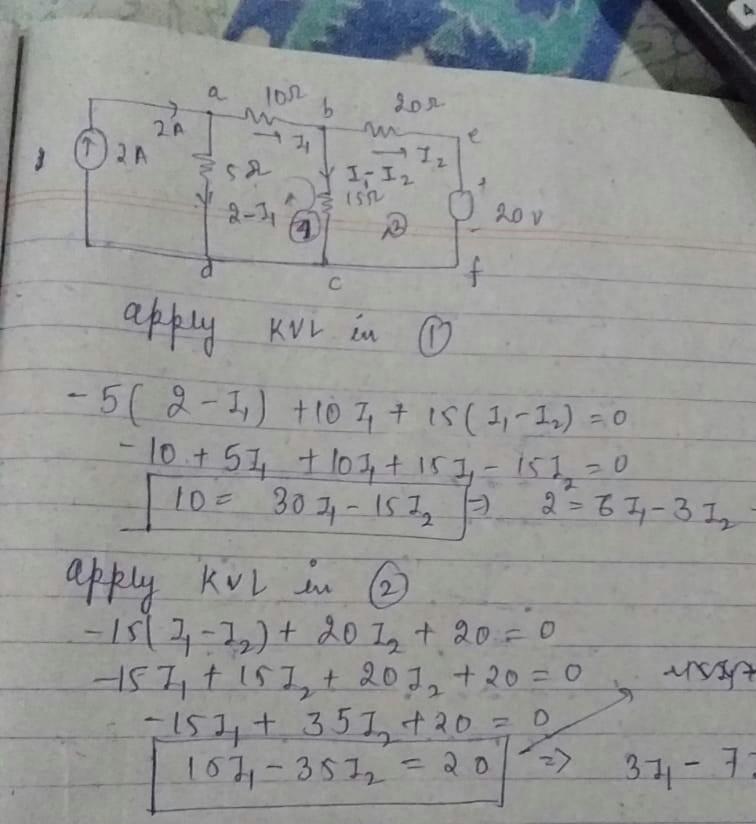 a 10Ω b 20Ω e
2A → I₁ → I₂
2A 5Ω I₁-I₂ +
15Ω
2-I₁ ① ② - 20V
d c f
apply KVL in ①
-5(2-I₁) +10I₁ + 15(I₁-I₂) = 0
-10 + 5I₁ +10I₁ + 15I₁ - 15I₂ = 0
10 = 30I₁ - 15I₂ ⇒ 2 = 6I₁ - 3I₂
apply KVL in ②
-15(I₁-I₂) + 20I₂ + 20 = 0
-15I₁ + 15I₂ + 20I₂ + 20 = 0
-15I₁ + 35I₂ + 20 = 0
15I₁ - 35I₂ = 20 ⇒ 3I₁ - 7